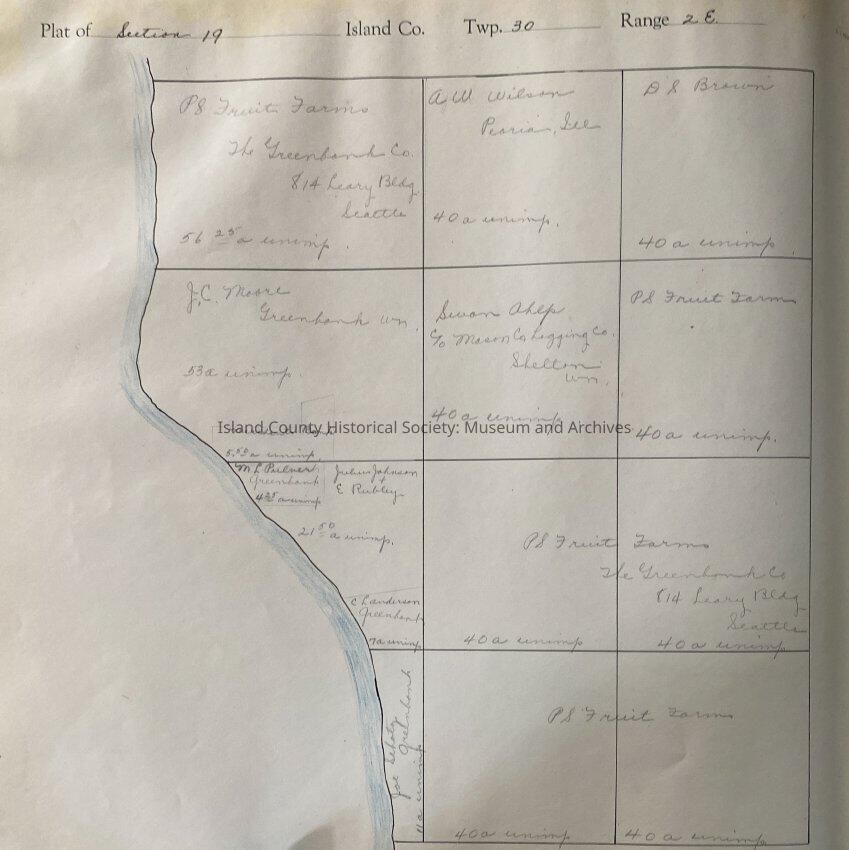 Plat of Section 19 Island Co. Twp. 30 Range 2 E.
PS Fruit Farms
The Greenbank Co.
814 Leary Bldg.
Seattle
56 25 a unimp.
A W Wilson
Peoria, Ill
40 a unimp.
D S Brown
40 a unimp
J.C. Moore
Greenbank Wn.
53 a unimp.
Swan
c/o Mason Co Logging Co.
Shelton
Wn.
40 a unimp
PS Fruit Farms
40 a unimp.
Island County Historical Society: Museum and Archives
5.50 a unimp.
M L
Greenbank
4 25 a unimp
Julius Johnson
+
E Rubley
21 50 a unimp.
C L Anderson
Greenbank
7a unimp
PS Fruit Farms
The Greenbank Co
814 Leary Bldg
Seattle
40 a unimp
40 a unimp
Joe
Greenbank
11a unimp
PS Fruit Farms
40 a unimp
40 a unimp